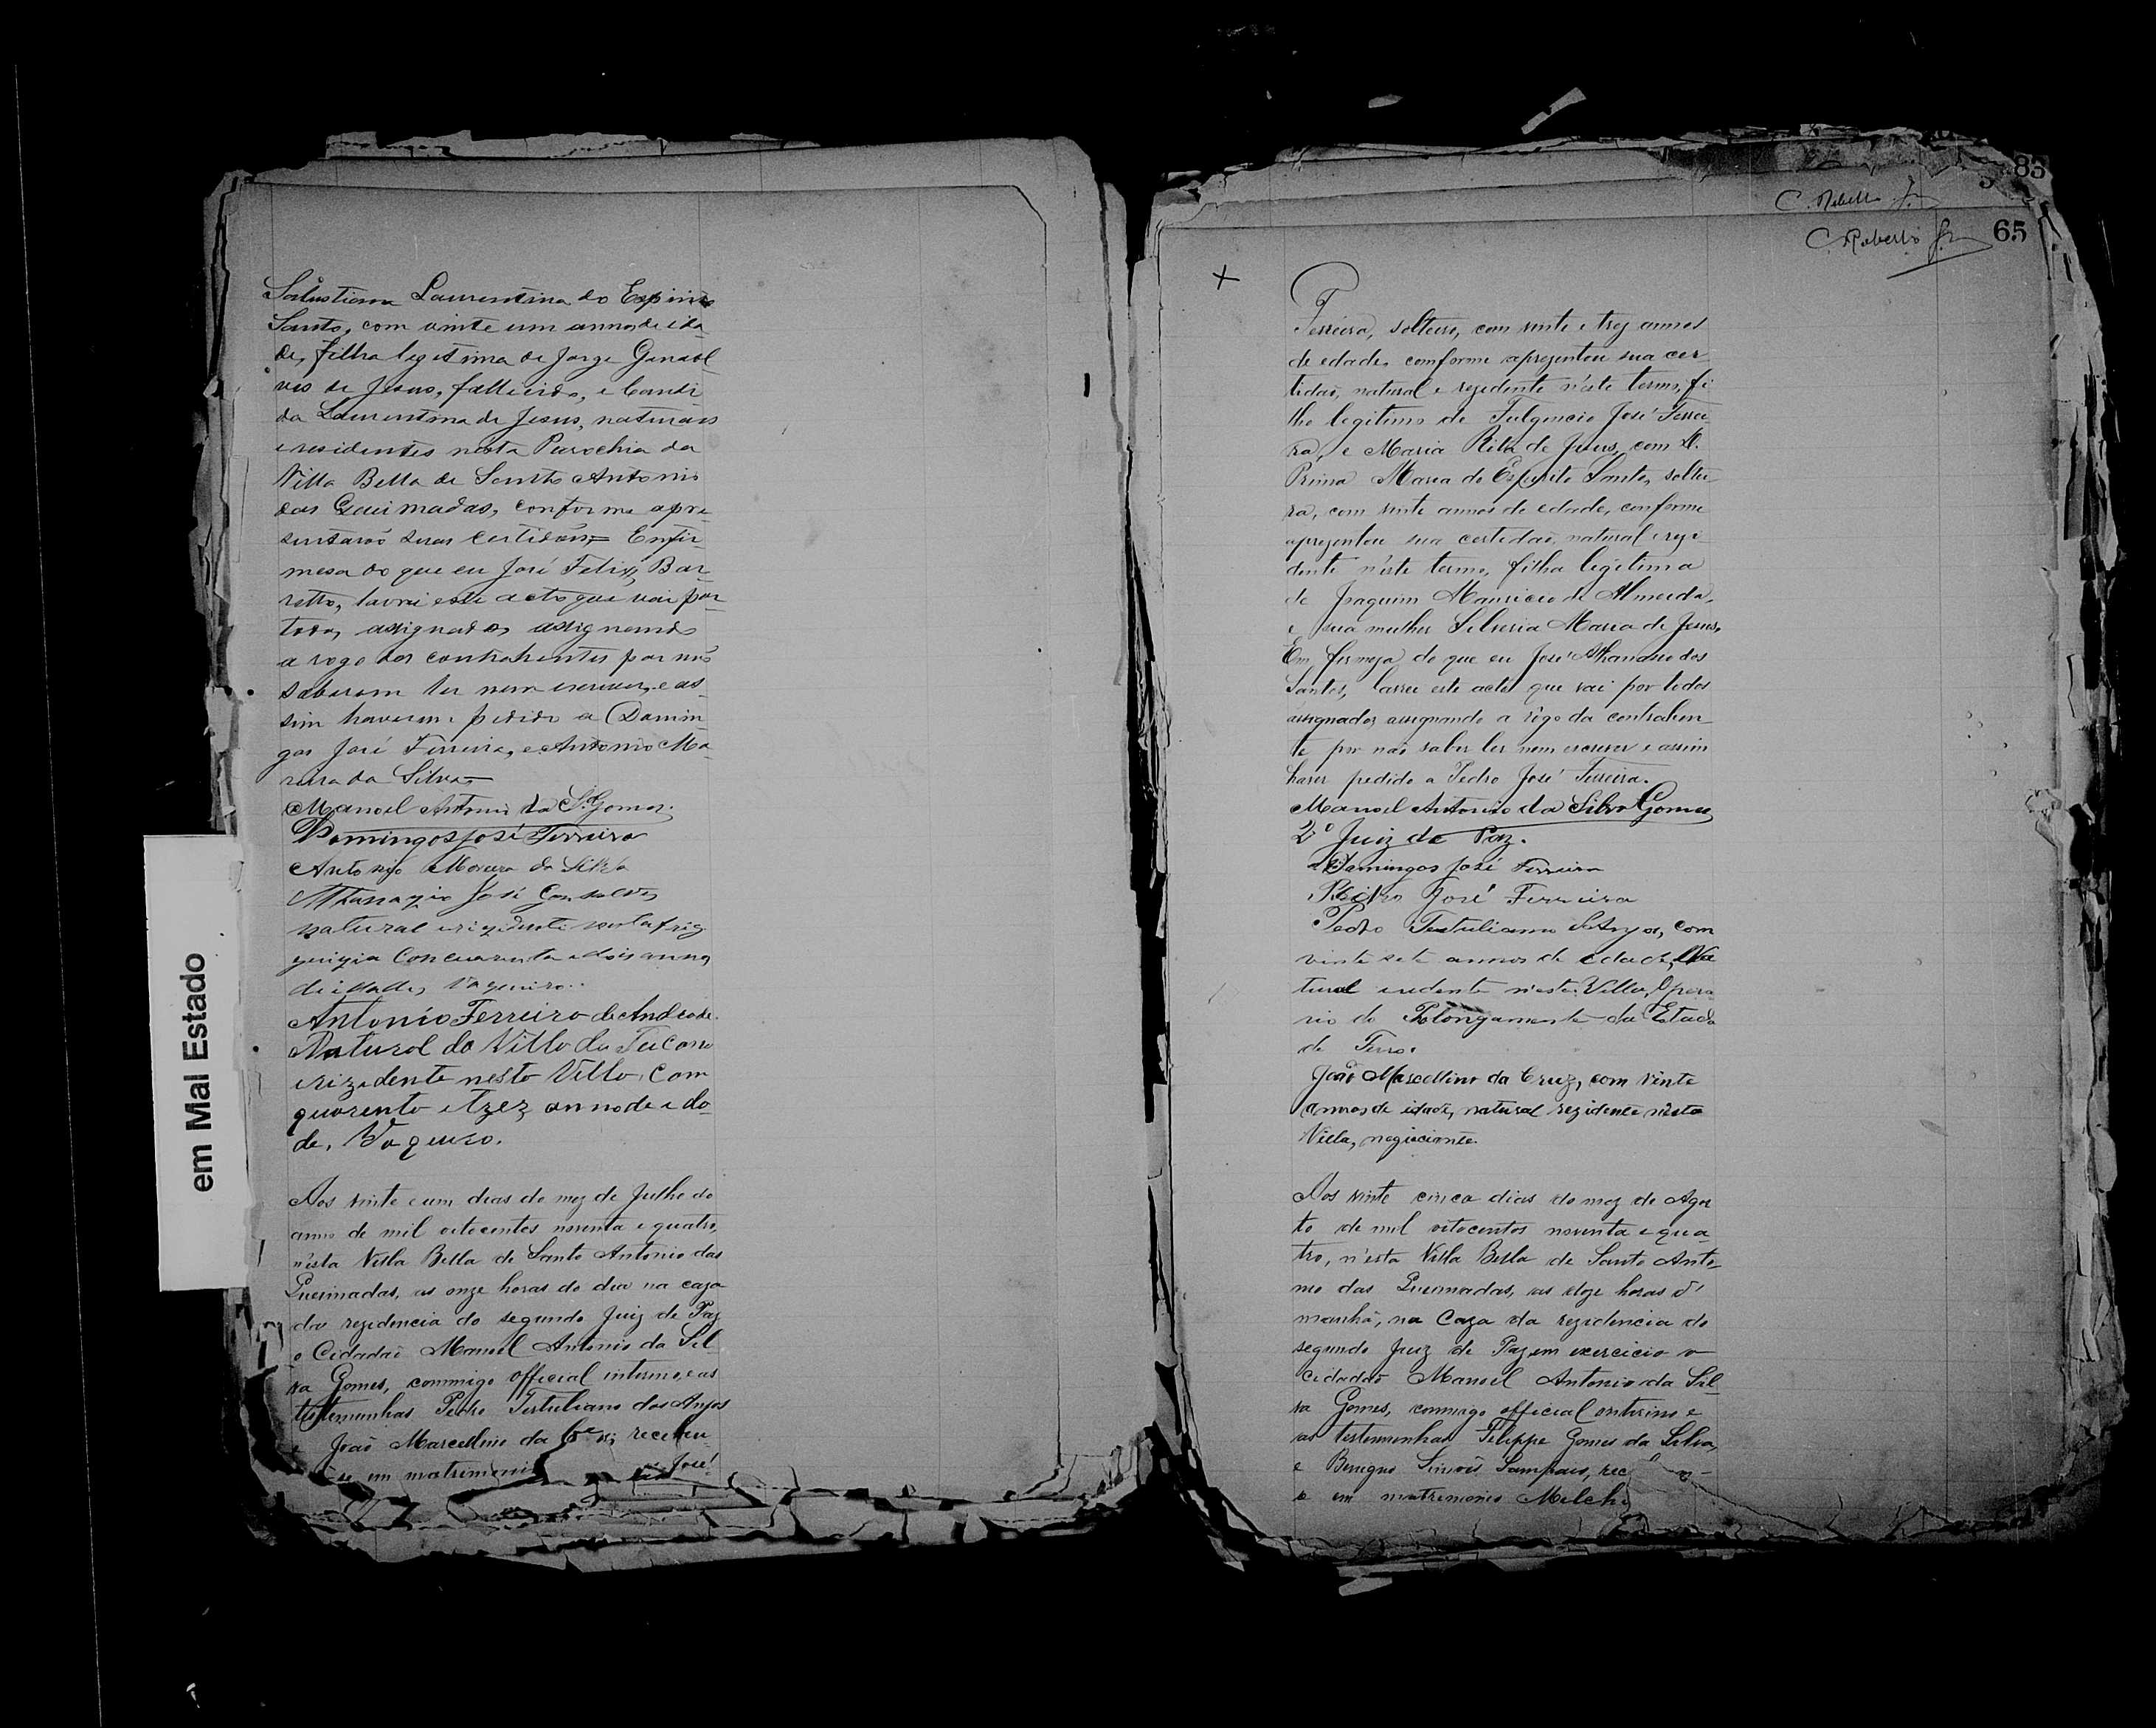 Salustiana Laurentina do Espirito
Santo, com vinte um annos de ida
de, filha legitima de Jorge Gonsal
ves de Jesus, fallicido, e Candi
da Laurentina de Jesus, naturaes
e residentes nesta Parochia da
Villa Bella de Santo Antonio
das Queimadas, conforme apre
sentarão suas certidões = Em fir
mesa do que eu José Felix Bar
retto, lavrei este acto que vai por
todos assignados, assignando
a rogo dos contrahentes por não
saberem ler nem escrever, e as
sim haverem pedido a Domin
gos José Ferreira, e Antonio Mo
reira da Silva =
Manoel Antonio da S.ª Gomes
Domingos José Ferreira
Antonio Moreira da Silva
Athanazio José Gonsalves
natural e rizidente nesta frig
guizia Con cuarenta e dois annos
di idade, Vaqueiro.
Antonio Ferreira de Andrade.
Natural da Villa do Tucano
e rizidente nesta Villa, Com
quarenta e trez annos de ida
de, Vaqueiro.
Aos vinte e um dias do mez de Julho do
anno de mil oitocentos noventa e quatro,
n'esta Villa Bella de Santo Antonio das
Queimadas, as onze horas do dia na caza
da rezidencia do segundo Juiz de Paz
o Cidadaõ Manoel Antonio da Sil
va Gomes, commigo official interino, e as
testemunhas Pedro Tertuliano dos Anjos
e João Marcellino da Cruz, recebeu
se em matrimonio José
83
C. Rebello Jr.
C. Roberto Jr. 65
+
Ferreira, solteiro, com vinte e trez annos
de edade, conforme aprezentou sua cer
tidaõ, natural e rezidente n'este termo, fi
lho legitimo de Fulgencio José Ferrei
ra, e Maria Rita de Jesus, com D.
Prima Maria do Espirito Santo, soltei
ra, com vinte annos de edade, conforme
aprezentou sua certidaõ, natural e rezi
dente n'este termo, filha legitima
de Joaquim Mauricio de Almeida,
e sua mulher Silveria Maria de Jesus,
Em firmeza do que eu José Athanasio dos
Santos, lavrei este acto que vai por todos
assignados, assignando a rogo da contrahen
te por naõ saber ler nem escrever e assim
haver pedido a Pedro José Ferreira.
Manoel Antonio da Silva Gomes
2º Juiz de Paz.
Domingos José Ferreira
Pedro José Ferreira
Pedro Tertuliano d'Anjos, com
vinte sete annos de edade, Na
tural e residente n'esta Villa, Opera
rio do Prolongamento da Estrada
de Ferro.
João Marcellino da Cruz, com vinte
annos de idade, natural rezidente n'esta
Villa, negociante.
Aos vinte cinco dias do mez de Agos
to de mil oitocentos noventa e qua
tro, n'esta Villa Bella de Santo Anto
nio das Queimadas, as doze horas d'
manhã, na Caza da rezidencia do
segundo Juiz de Paz em exercicio o
Cidadaõ Manoel Antonio da Sil
va Gomes, commigo official interino e
as testemunhas Filippe Gomes da Silva
e Benigno Simões Sampaio, rec
e em matrimonio Melch
em Mal Estado